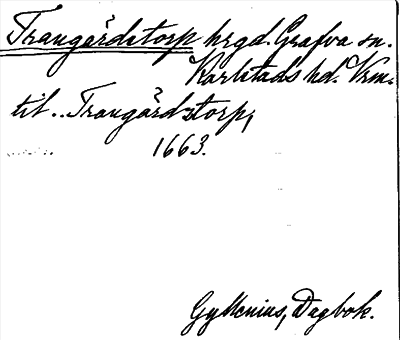 Trangärdstorp hrgd. Grafva sn.
Karlstads hd. Vrm.
til.. Trangärdztorp,
1663.
Gyllenius, Dagbok.